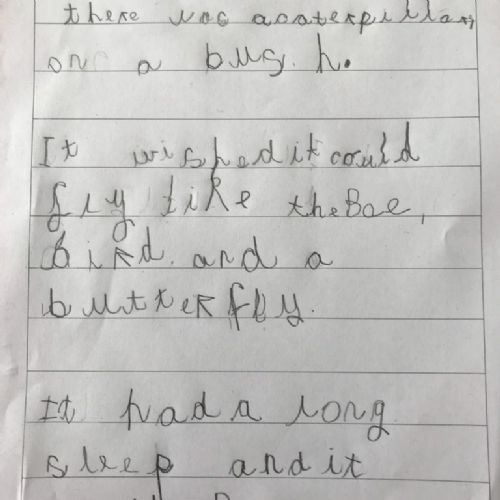 there was a caterpillar,
on a bus.h.
It wished it could
fly like the Bee,
bird. and a
butterfly.
It had a long
sleep and it